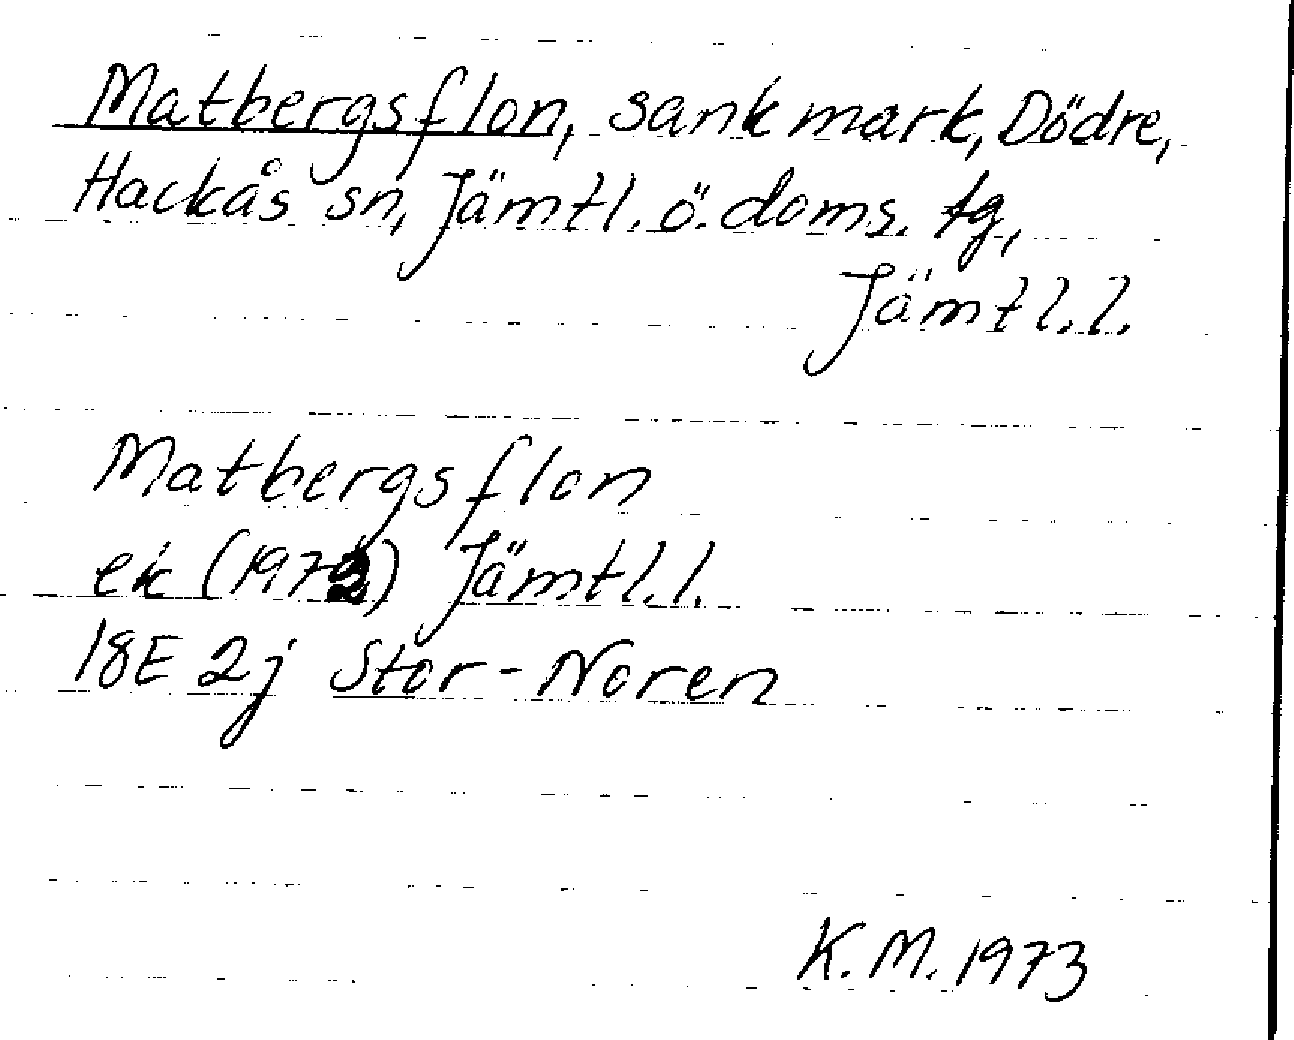 Matbergsflon, sank mark, Dödre,
Hackås sn, Jämtl. ö. doms. tg,
Jämtl. l.
Matbergsflon
ek (1973) Jämtl. l.
18E 2j Stor-Noren
K. M. 1973